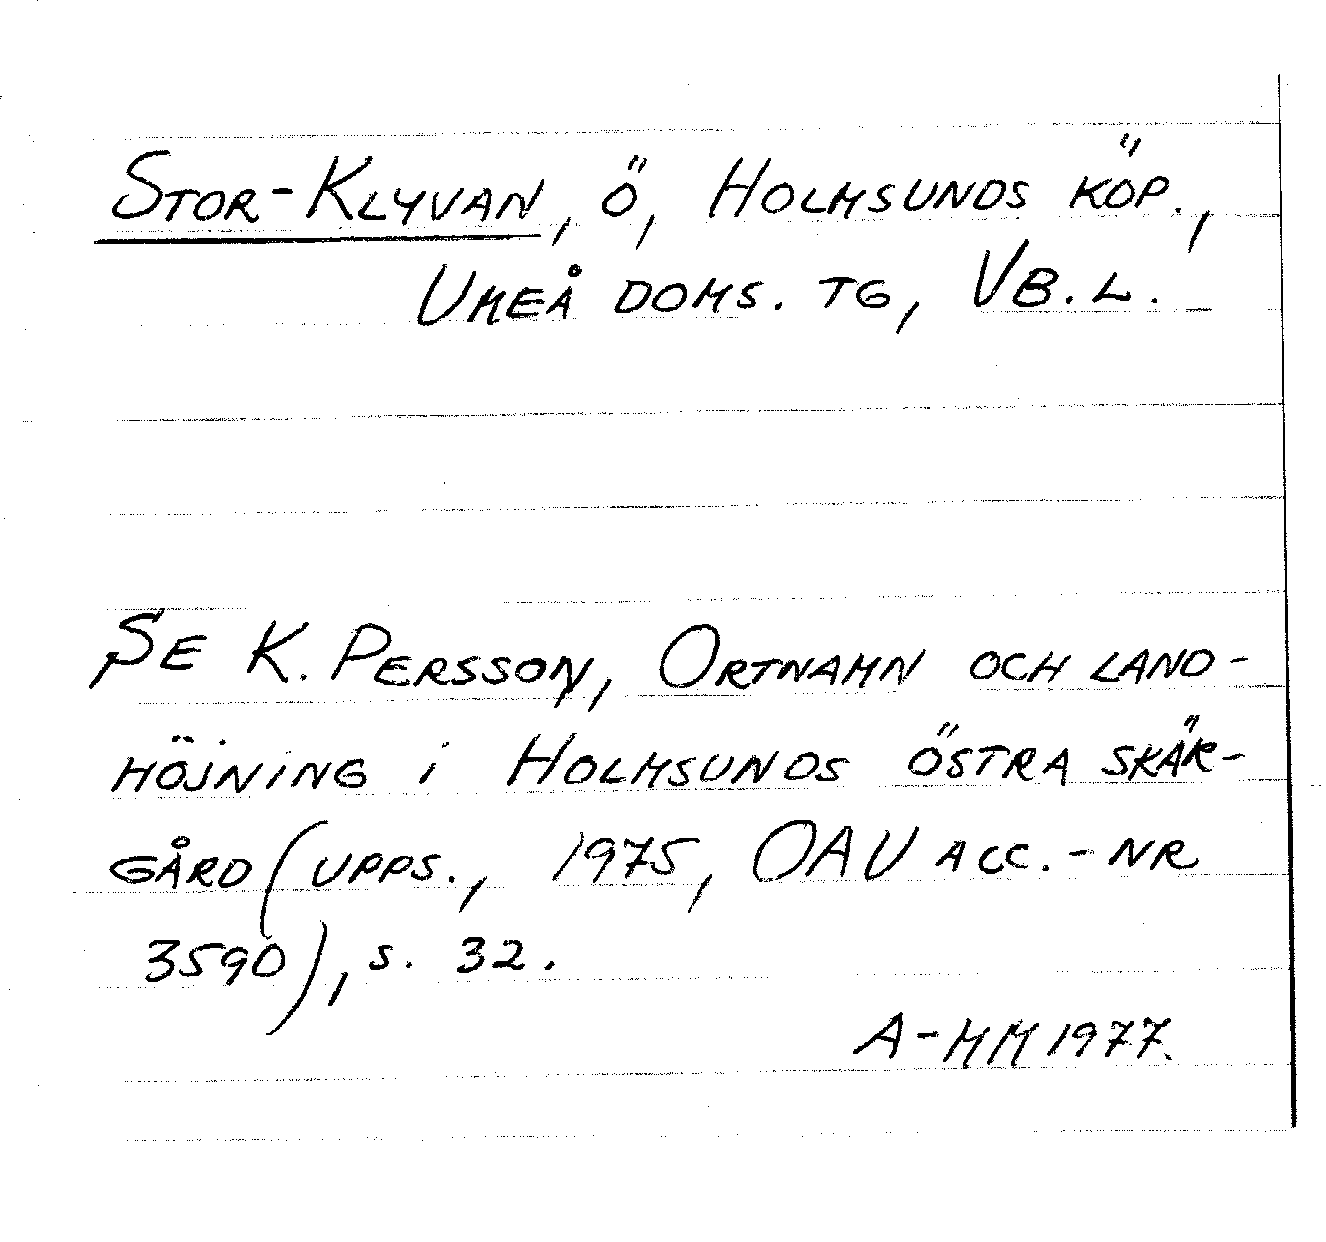 Stor-Klyvan, ö, Holmsunds köp.,
Umeå doms. tg, Vb. l.
Se K. Persson, Ortnamn och land-
höjning i Holmsunds östra skär-
gård (Upps., 1975, OAU acc.-nr
3590), s. 32.
A-MM 1977.